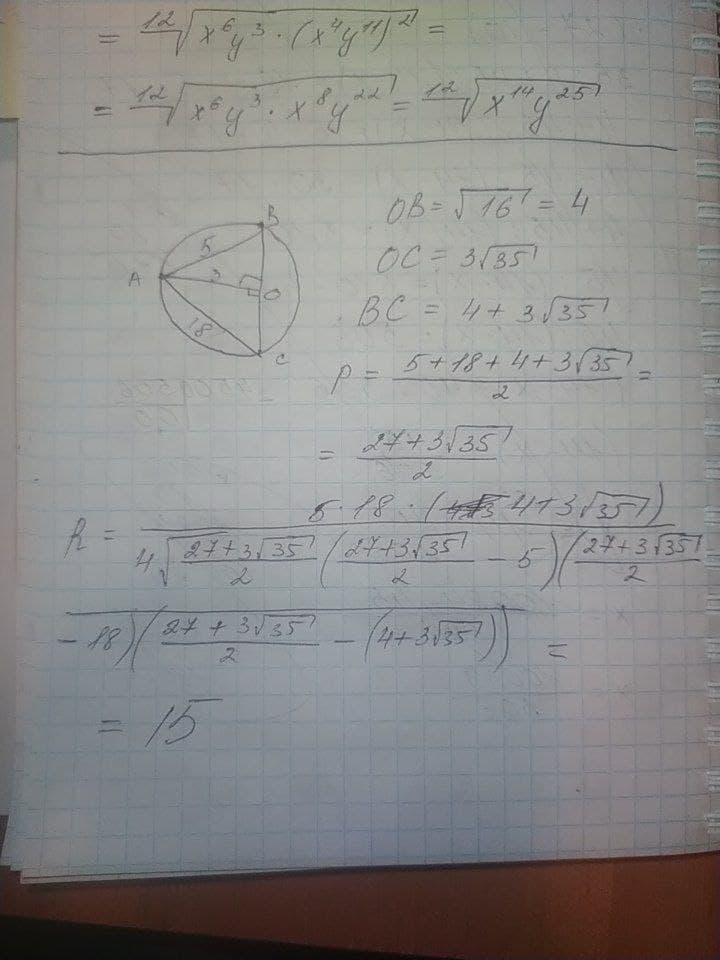 = ¹²√(x⁶y³ · (x⁴y¹¹)²) =
= ¹²√(x⁶y³ · x⁸y²²) = ¹²√(x¹⁴y²⁵)
B
5
A
3
O
18
C
OB = √16 = 4
OC = 3√35
BC = 4 + 3√35
p = (5 + 18 + 4 + 3√35)/2 =
= (27 + 3√35)/2
R = 5 · 18 · (4 + 3√35) / 4√((27 + 3√35)/2 ((27 + 3√35)/2 − 5)((27 + 3√35)/2
− 18)((27 + 3√35)/2 − (4 + 3√35))) =
= 15